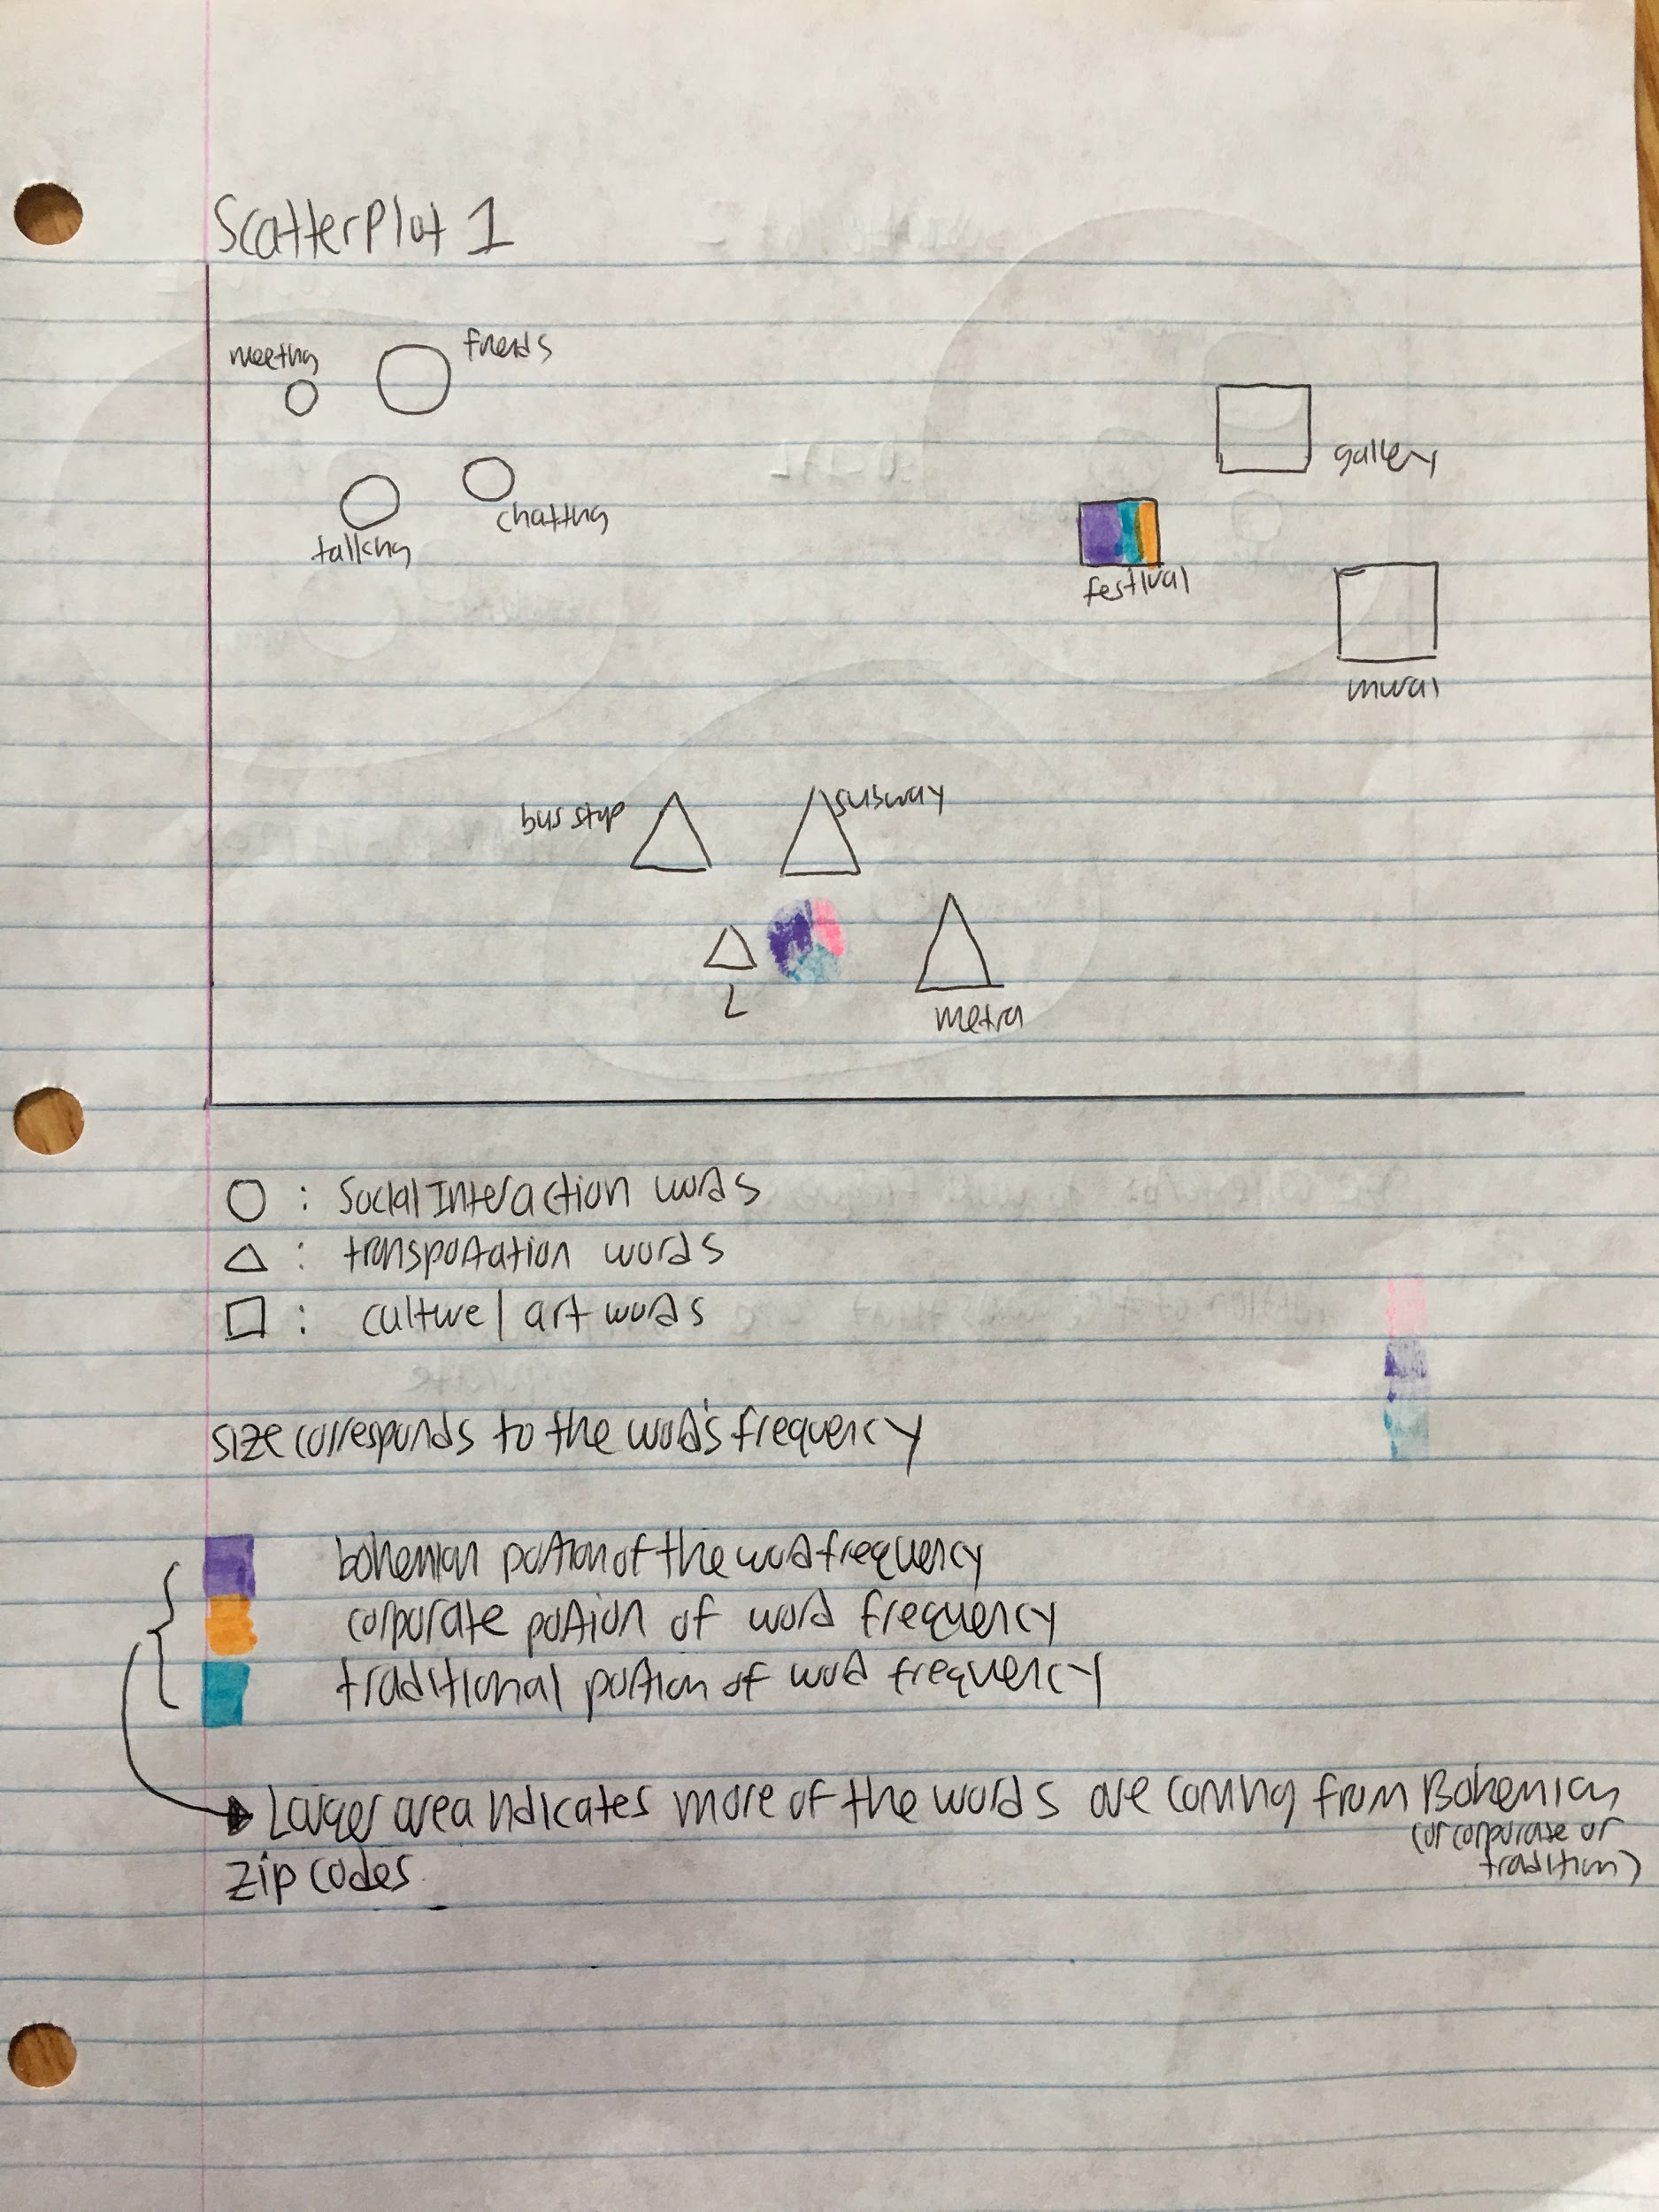 Scatterplot 1
meeting
friends
gallery
chatting
talking
festival
mural
bus stop
subway
L
metra
: Social Interaction words
: transportation words
: culture / art words
size corresponds to the word's frequency
bohemian portion of the word frequency
corporate portion of word frequency
traditional portion of word frequency
Larger area indicates more of the words are coming from Bohemian
(or corporate or
tradition)
zip codes.